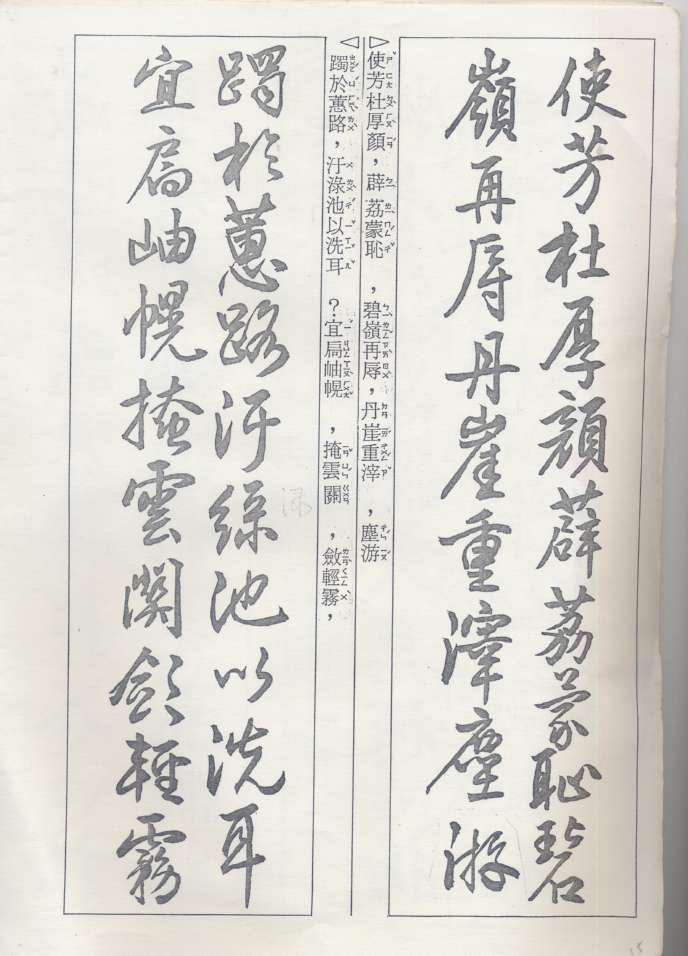 使芳杜厚顏薜荔蒙恥碧
嶺再辱丹崖重滓塵游
使芳杜厚顏，薜荔蒙恥，碧嶺再辱，丹崖重滓，塵游
躅於蕙路，汙淥池以洗耳？宜扃岫幌，掩雲關，斂輕霧，
躅於蕙路汙綠池以洗耳
宜扃岫幌掩雲関斂輕霧
15